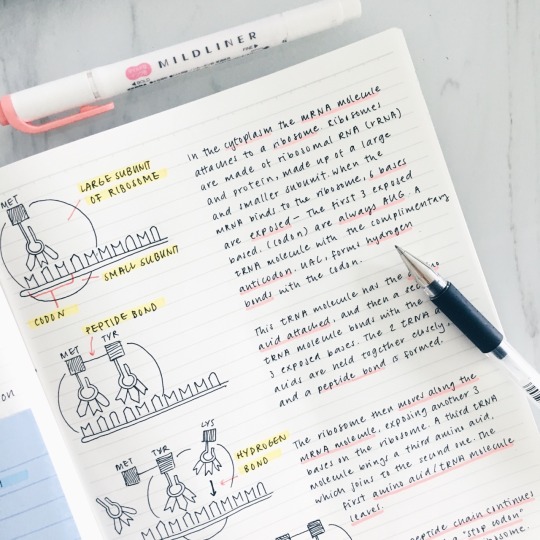 MILDLINER
In the cytoplasm the mRNA molecule
attaches to a ribosome. Ribosomes
are made of ribosomal RNA (rRNA)
and protein, made up of a large
and smaller subunit. When the
mRNA binds to the ribosome, 6 bases
are exposed – The first 3 exposed
based. (codon) are always AUG. A
tRNA molecule with the complimentary
anticodon. UAC, forms hydrogen
bonds with the codon.
MET
LARGE SUBUNIT
OF RIBOSOME
SMALL SUBUNIT
CODON
This tRNA molecule has the
acid attached, and then a
tRNA molecule bonds with the
3 exposed bases. The 2
acids are held together closely
and a peptide bond is formed.
PEPTIDE BOND
MET
TYR
The ribosome then moves along the
mRNA molecule, exposing another 3
bases on the ribosome. A third tRNA
molecule brings a third amino acid,
which joins to the second one. The
first amino acid/tRNA molecule
leaves.
LYS
MET
TYR
HYDROGEN
BOND
peptide chain continues
a "stop codon"
on